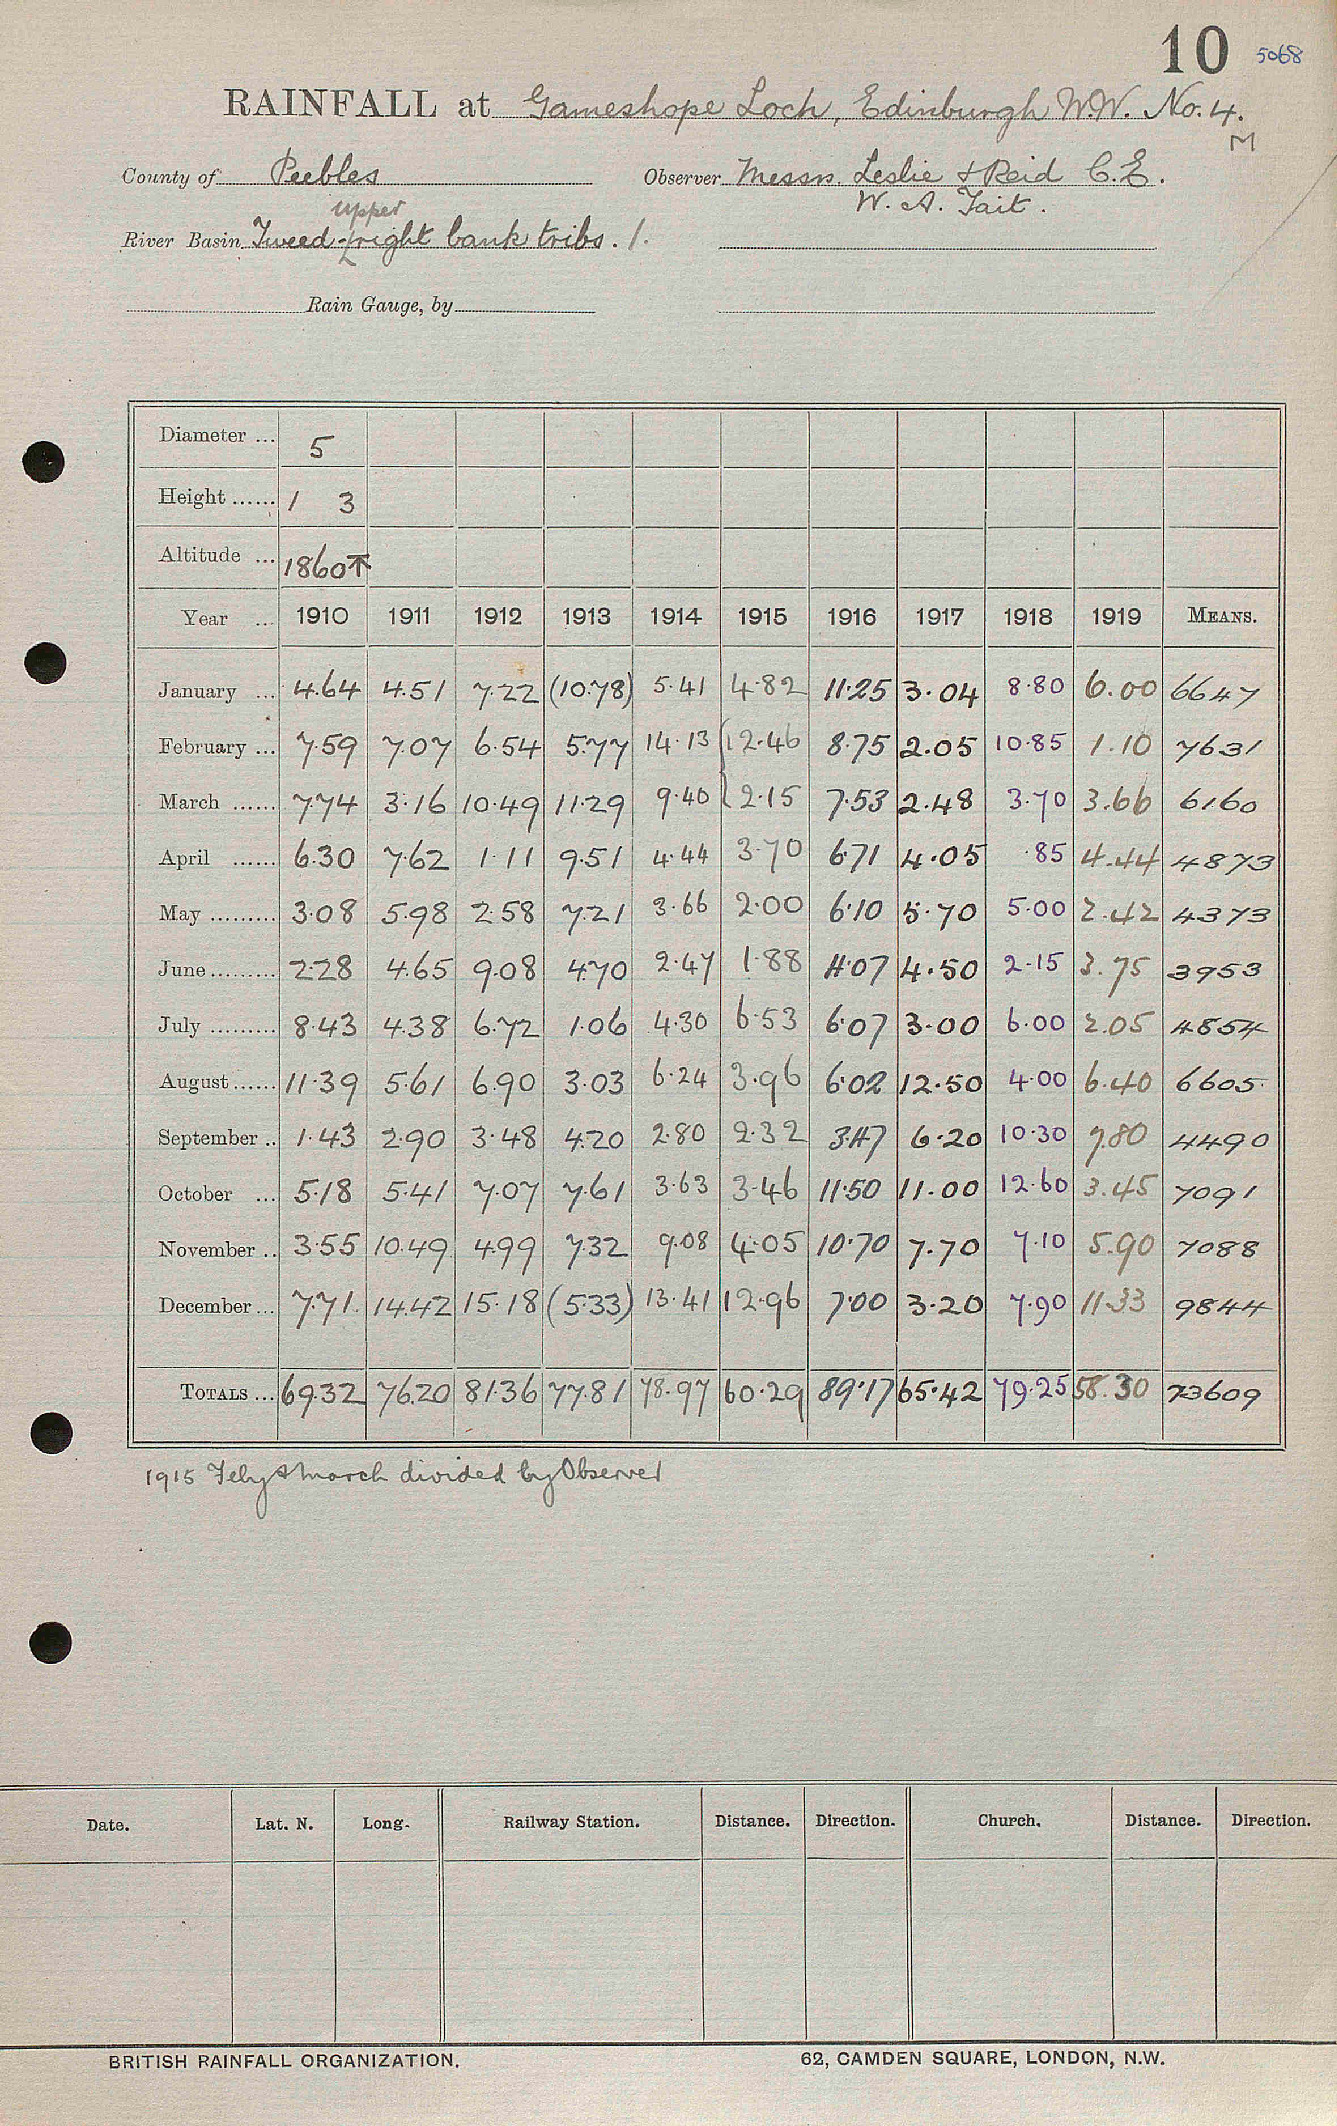 10 5068
RAINFALL at Gameshope Loch, Edinburgh W.W. No. 4.
M
County of Peebles Observer Messrs. Leslie & Reid C.E.
W. A. Tait.
upper
River Basin Tweed-right bank tribs. 1.
Rain Gauge, by
Diameter ... 5
Height ...... 1 3
Altitude ... 1860
Year ... 1910 1911 1912 1913 1914 1915 1916 1917 1918 1919 MEANS.
January ... 4.64 4.51 7.22 (10.78) 5.41 4.82 11.25 3.04 8.80 6.00 6647
February ... 7.59 7.07 6.54 5.77 14.13 {12.46 8.75 2.05 10.85 1.10 7631
March ...... 7.74 3.16 10.49 11.29 9.40 {2.15 7.53 2.48 3.70 3.66 6160
April ...... 6.30 7.62 1.11 9.51 4.44 3.70 6.71 4.05 .85 4.44 4873
May ......... 3.08 5.98 2.58 7.21 3.66 2.00 6.10 5.70 5.00 2.42 4373
June ......... 2.28 4.65 9.08 4.70 2.47 1.88 4.07 4.50 2.15 3.75 3953
July ......... 8.43 4.38 6.72 1.06 4.30 6.53 6.07 3.00 6.00 2.05 4854
August ...... 11.39 5.61 6.90 3.03 6.24 3.96 6.02 12.50 4.00 6.40 6605
September .. 1.43 2.90 3.48 4.20 2.80 2.32 3.47 6.20 10.30 7.80 4490
October ... 5.18 5.41 7.07 7.61 3.63 3.46 11.50 11.00 12.60 3.45 7091
November .. 3.55 10.49 4.99 7.32 9.08 4.05 10.70 7.70 7.10 5.90 7088
December ... 7.71 14.42 15.18 (5.33) 13.41 12.96 7.00 3.20 7.90 11.33 9844
TOTALS ... 69.32 76.20 81.36 77.81 78.97 60.29 89.17 65.42 79.25 58.30 73609
1915 Feby & March divided by Observer
Date. Lat. N. Long. Railway Station. Distance. Direction. Church. Distance. Direction.
BRITISH RAINFALL ORGANIZATION. 62, CAMDEN SQUARE, LONDON, N.W.